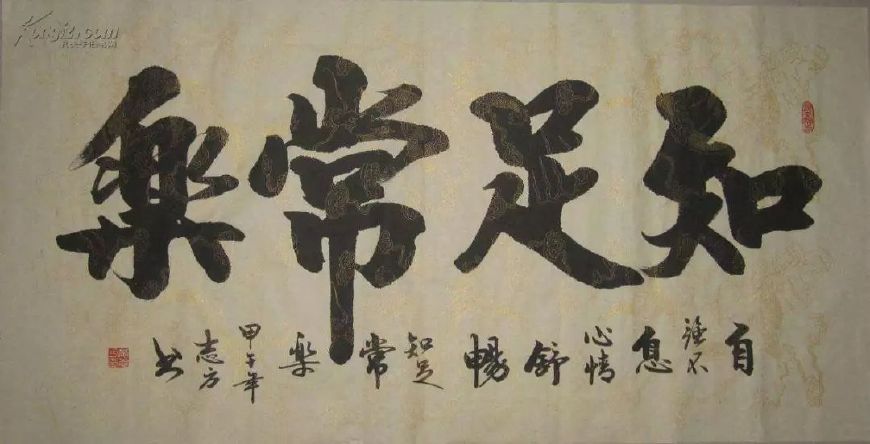 知足常樂
自強不息心情舒暢知足常樂
甲午年志方书